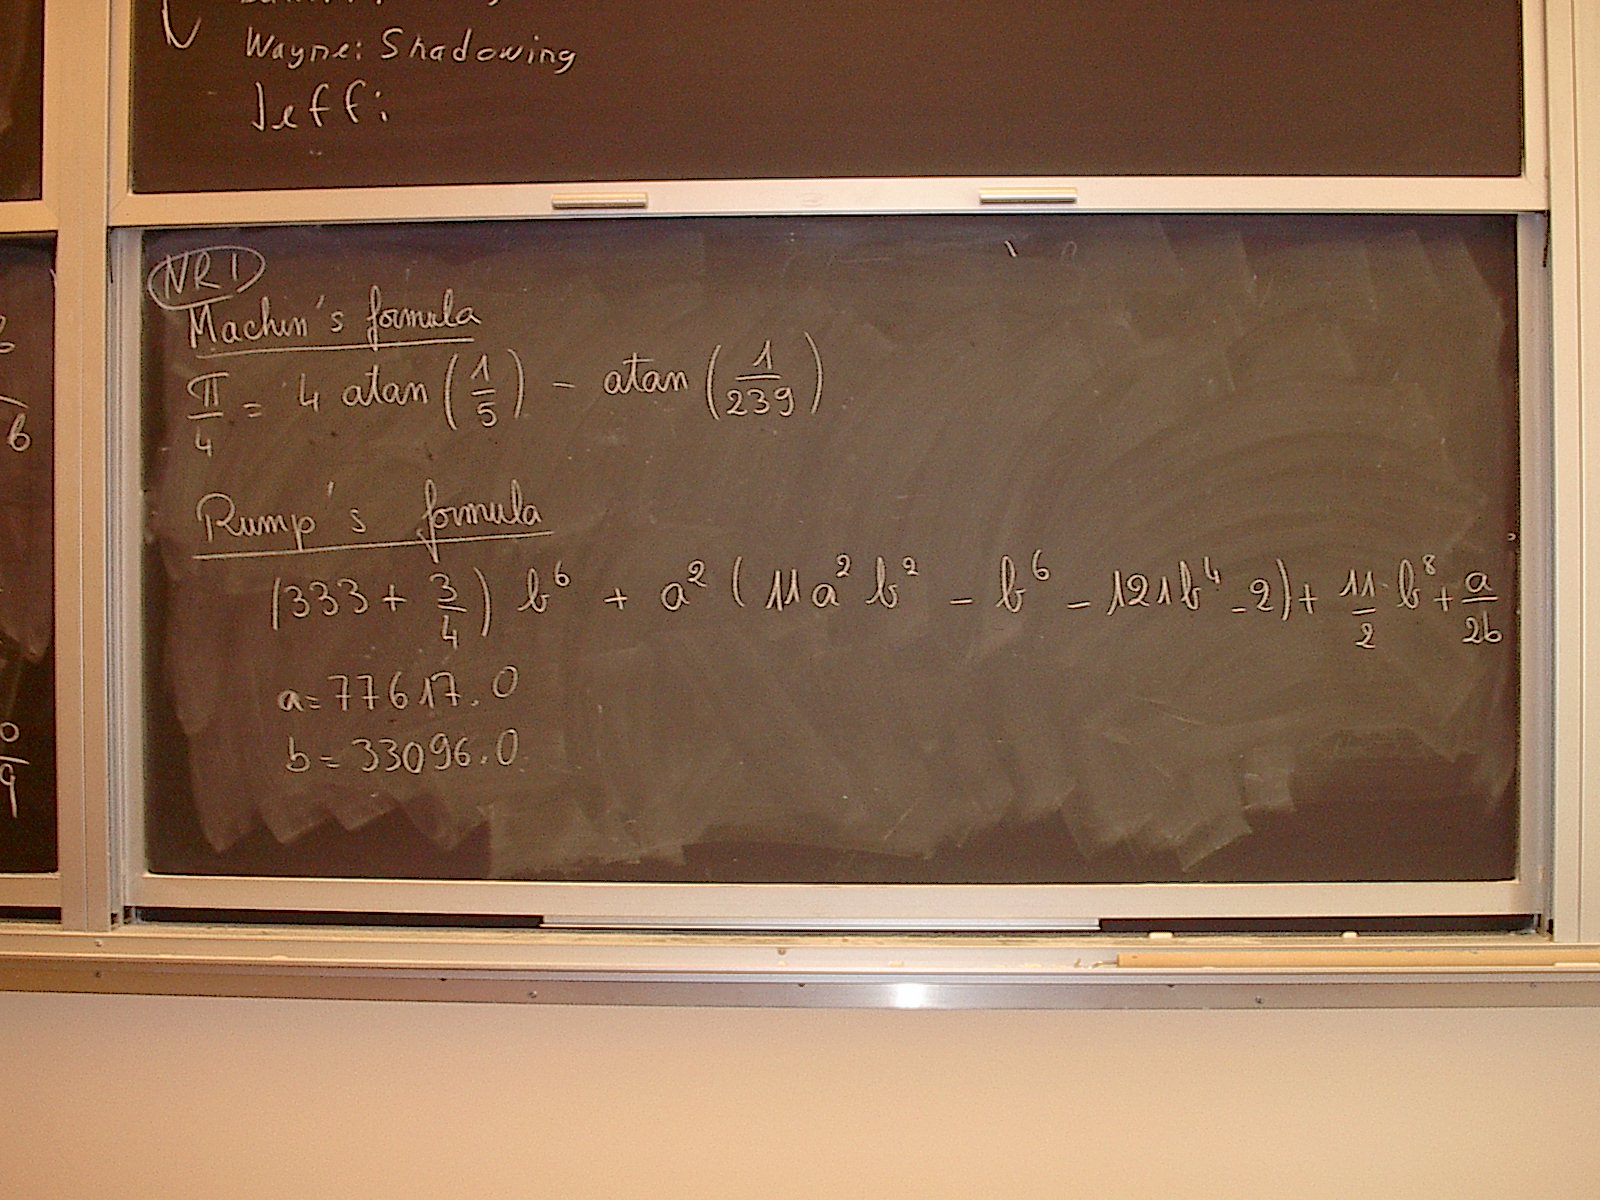 Wayne: Shadowing
Jeff:
NR1
Machin's formula
π/4 = 4 atan(1/5) - atan(1/239)
Rump's formula
(333 + 3/4) b⁶ + a² (11a² b² - b⁶ - 121b⁴ - 2) + 11/2 b⁸ + a/2b
a = 77617.0
b = 33096.0